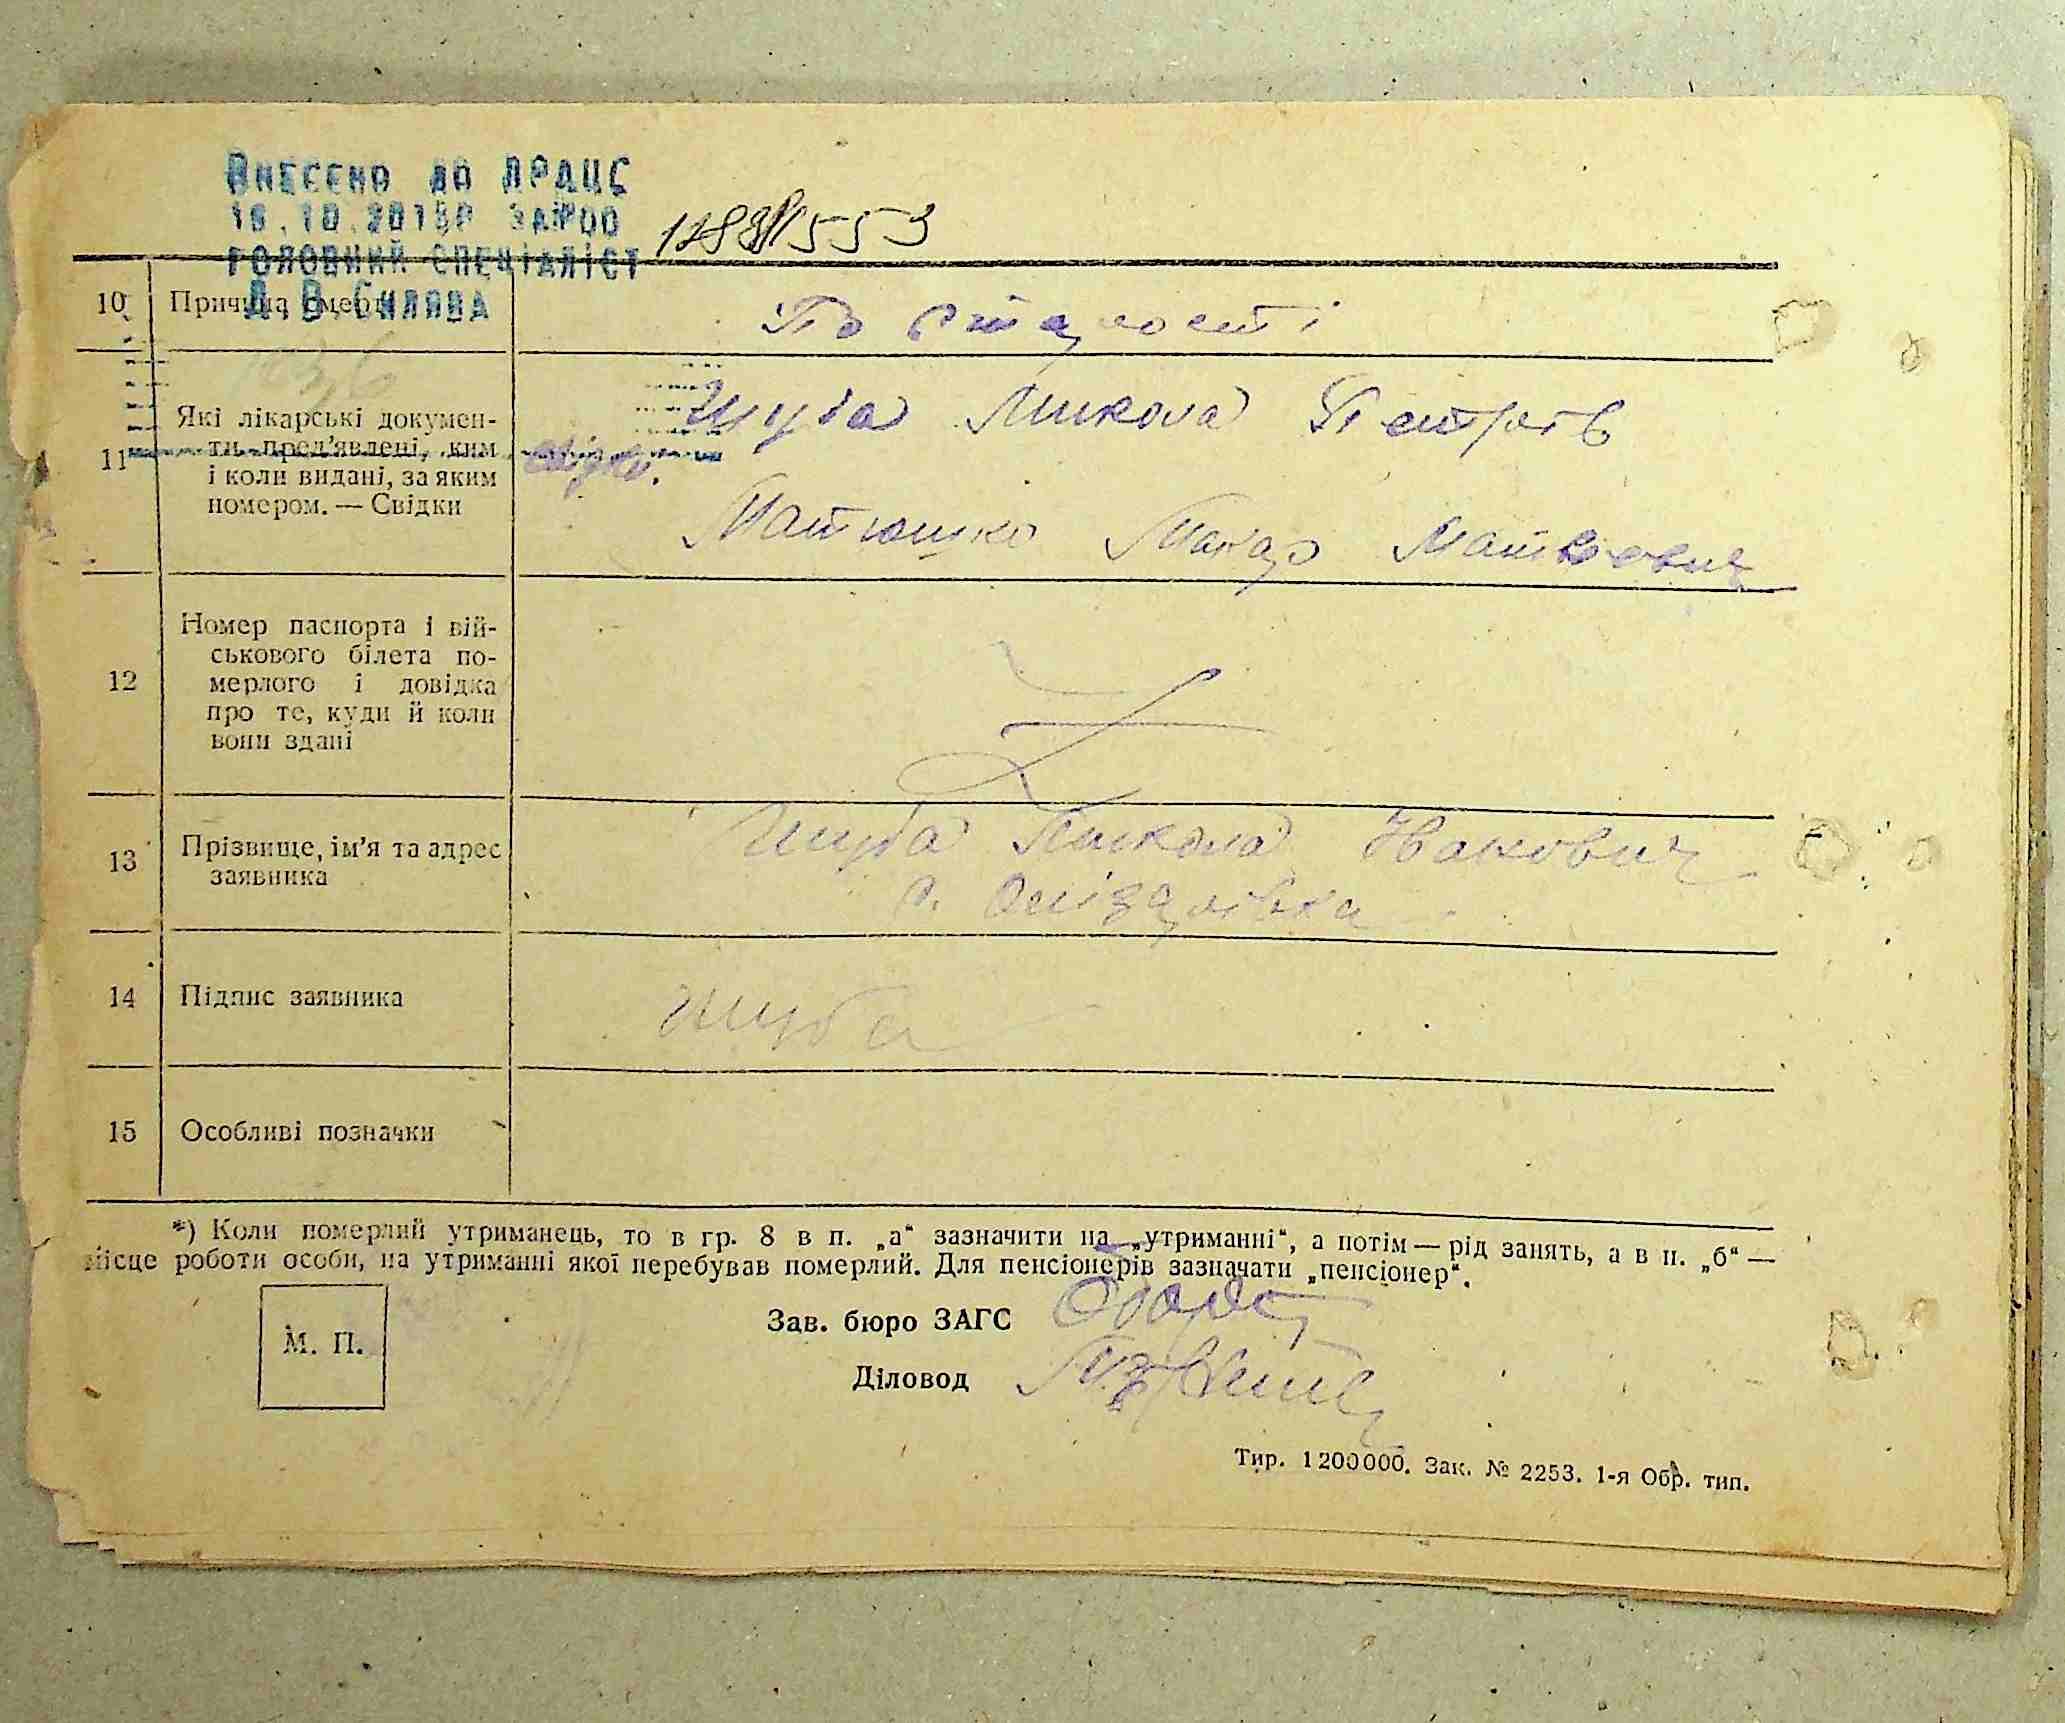 ВНЕСЕНО ДО ДРАЦС
ГОЛОВНИЙ СПЕЦІАЛІСТ
10 Причина смерті
По старості
11 Які лікарські докумен-
ти пред'явлені, ким
і коли видані, за яким
номером. — Свідки
Шуба Микола Петрів
Матюшко Макар Матвієвич
12 Номер паспорта і вій-
ськового білета по-
мерлого і довідка
про те, куди й коли
вони здані
13 Прізвище, ім'я та адрес
заявника
Шуба Микола Іванович
14 Підпис заявника
Шуба
15 Особливі позначки
*) Коли померлий утриманець, то в гр. 8 в п. „а“ зазначити на „утриманні“, а потім — рід занять, а в п. „б“ —
місце роботи особи, на утриманні якої перебував померлий. Для пенсіонерів зазначати „пенсіонер“.
М. П.
Зав. бюро ЗАГС
Діловод
Тир. 1200000. Зак. № 2253. 1-я Обр. тип.